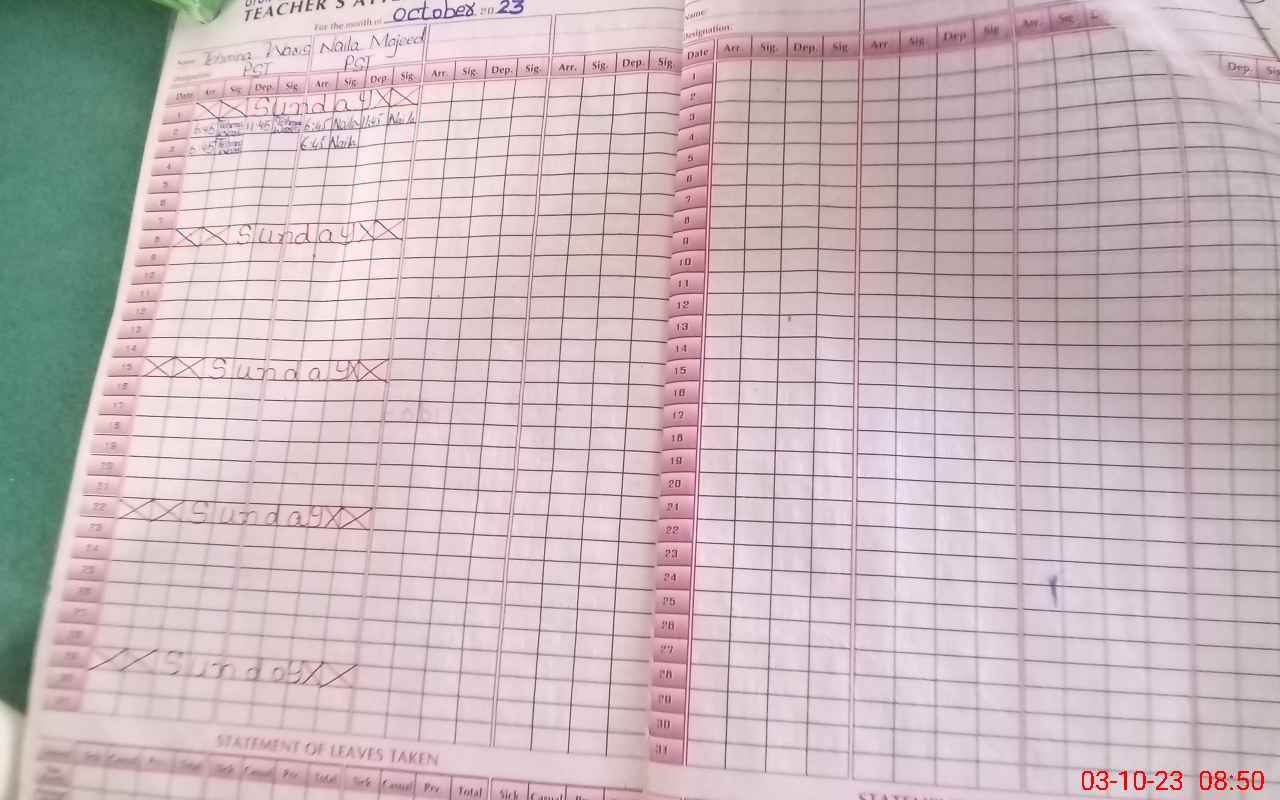 TEACHER'S
For the month of October 2023
Name: Naila Majeed
Designation: PST PST
Date Arr. Sig. Dep. Sig. Arr. Sig. Dep. Sig. Arr. Sig. Dep. Sig. Arr. Sig. Dep. Sig.
1 XX Sunday XX
2 6:45 11:45 6:45 Naila 11:45 Naila
3 6:45 6:45 Naila
4
5
6
7
8 XX Sunday XX
9
10
11
12
13
14
15 XX Sunday XX
16
17
18
19
20
21
22 XX Sunday XX
23
24
25
26
27
28
29 XX Sunday XX
30
31
STATEMENT OF LEAVES TAKEN
Sick Casual Prv. Total Sick Casual Prv. Total Sick Casual Prv. Total Sick Casual
Name:
Designation:
Date Arr. Sig. Dep. Sig. Arr. Sig. Dep. Sig. Arr. Sig.
Dep.
1
2
3
4
5
6
7
8
9
10
11
12
13
14
15
16
17
18
19
20
21
22
23
24
25
26
27
28
29
30
31
03-10-23 08:50